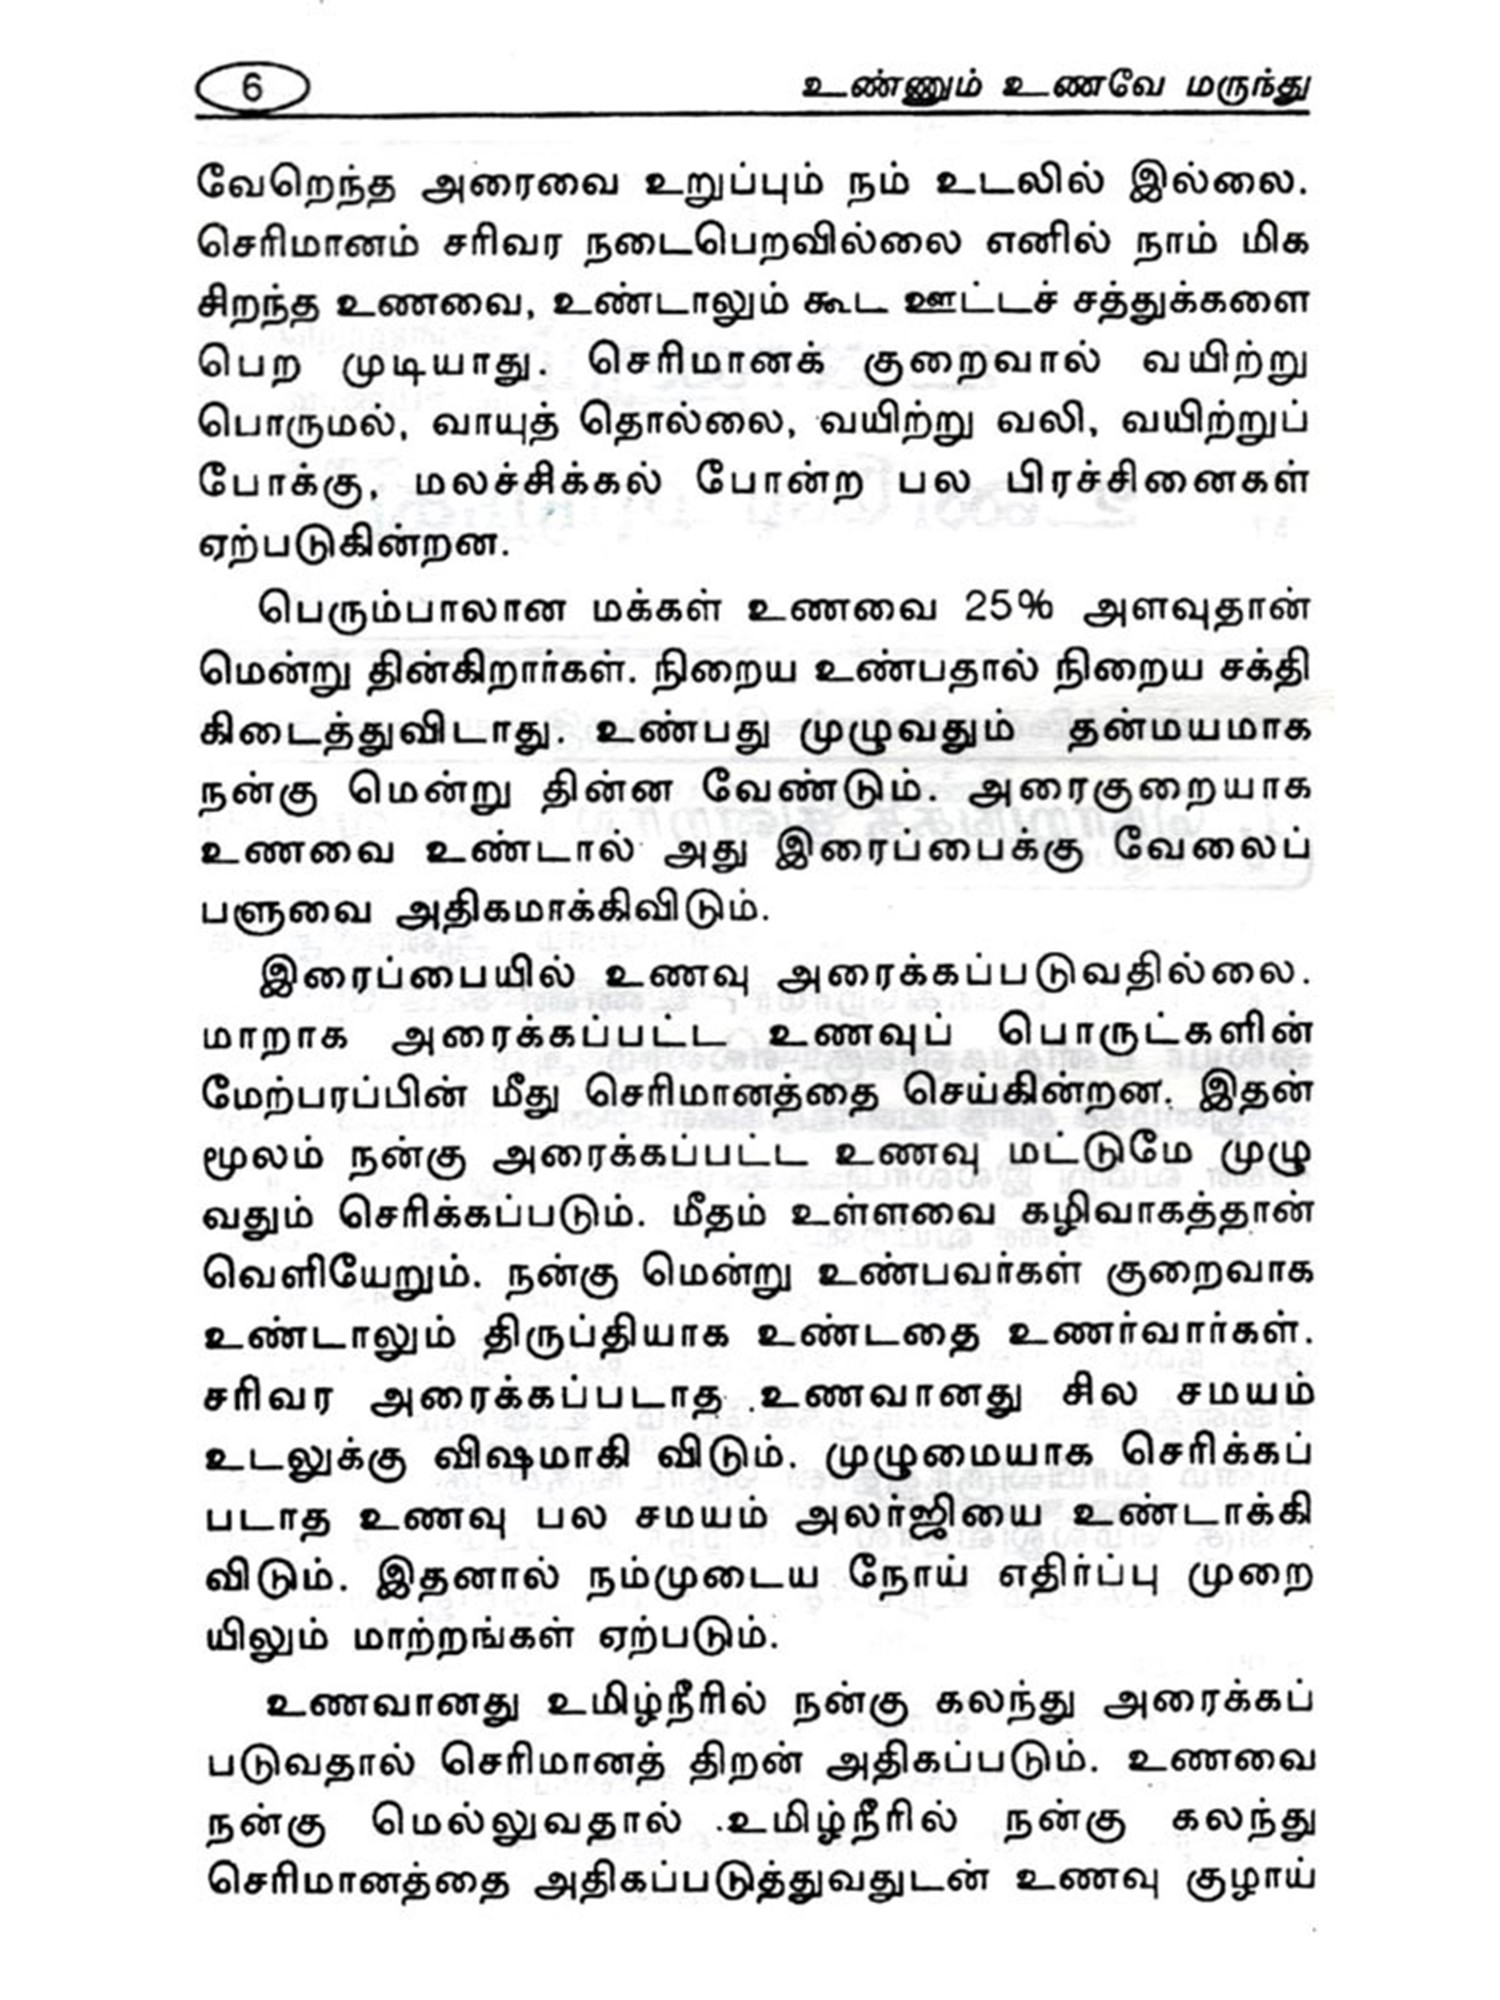 6
உண்ணும் உணவே மருந்து
வேறெந்த அரைவை உறுப்பும் நம் உடலில் இல்லை.
செரிமானம் சரிவர நடைபெறவில்லை எனில் நாம் மிக
சிறந்த உணவை, உண்டாலும் கூட ஊட்டச் சத்துக்களை
பெற முடியாது. செரிமானக் குறைவால் வயிற்று
பொருமல், வாயுத் தொல்லை, வயிற்று வலி, வயிற்றுப்
போக்கு, மலச்சிக்கல் போன்ற பல பிரச்சினைகள்
ஏற்படுகின்றன.
பெரும்பாலான மக்கள் உணவை 25% அளவுதான்
மென்று தின்கிறார்கள். நிறைய உண்பதால் நிறைய சக்தி
கிடைத்துவிடாது. உண்பது முழுவதும் தன்மயமாக
நன்கு மென்று தின்ன வேண்டும். அரைகுறையாக
உணவை உண்டால் அது இரைப்பைக்கு வேலைப்
பளுவை அதிகமாக்கிவிடும்.
இரைப்பையில் உணவு அரைக்கப்படுவதில்லை.
மாறாக அரைக்கப்பட்ட உணவுப் பொருட்களின்
மேற்பரப்பின் மீது செரிமானத்தை செய்கின்றன. இதன்
மூலம் நன்கு அரைக்கப்பட்ட உணவு மட்டுமே முழு
வதும் செரிக்கப்படும். மீதம் உள்ளவை கழிவாகத்தான்
வெளியேறும். நன்கு மென்று உண்பவர்கள் குறைவாக
உண்டாலும் திருப்தியாக உண்டதை உணர்வார்கள்.
சரிவர அரைக்கப்படாத உணவானது சில சமயம்
உடலுக்கு விஷமாகி விடும். முழுமையாக செரிக்கப்
படாத உணவு பல சமயம் அலர்ஜியை உண்டாக்கி
விடும். இதனால் நம்முடைய நோய் எதிர்ப்பு முறை
யிலும் மாற்றங்கள் ஏற்படும்.
உணவானது உமிழ்நீரில் நன்கு கலந்து அரைக்கப்
படுவதால் செரிமானத் திறன் அதிகப்படும். உணவை
நன்கு மெல்லுவதால் உமிழ்நீரில் நன்கு கலந்து
செரிமானத்தை அதிகப்படுத்துவதுடன் உணவு குழாய்